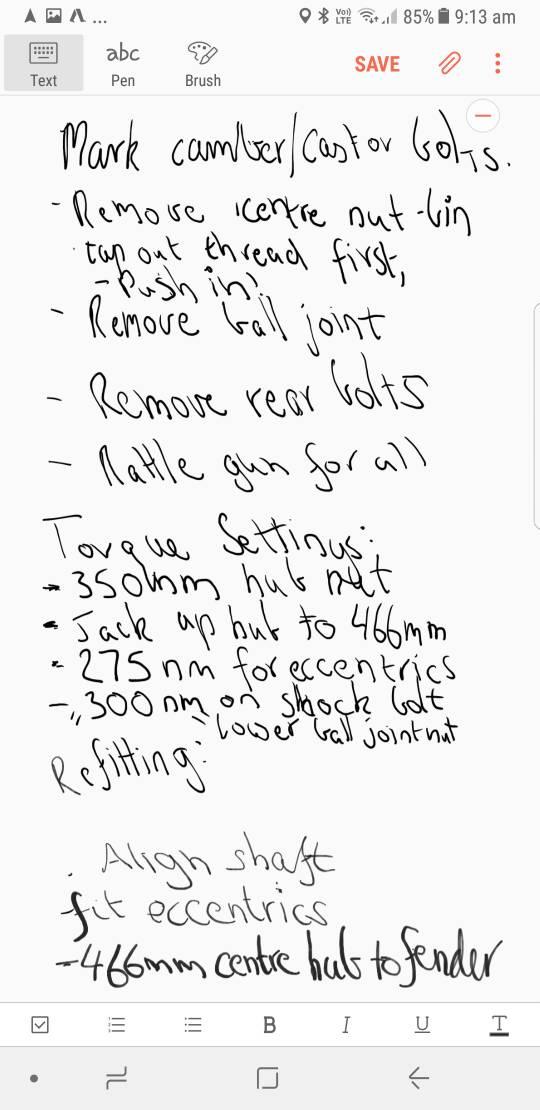 85% 9:13 am
Text
abc
Pen
Brush
SAVE
Mark camber/Castor bolts.
- Remove centre nut -
tap out thread first,
- Push in
- Remove ball joint
- Remove rear bolts
- Rattle gun for all
Torque Settings:
- 350nm hub nut
- Jack up hub to 466mm
- 275nm for eccentrics
- 300nm on shock bolt
lower ball joint nut
Refitting:
. Align shaft
-fit eccentrics
-466mm centre hub to fender
B I U T